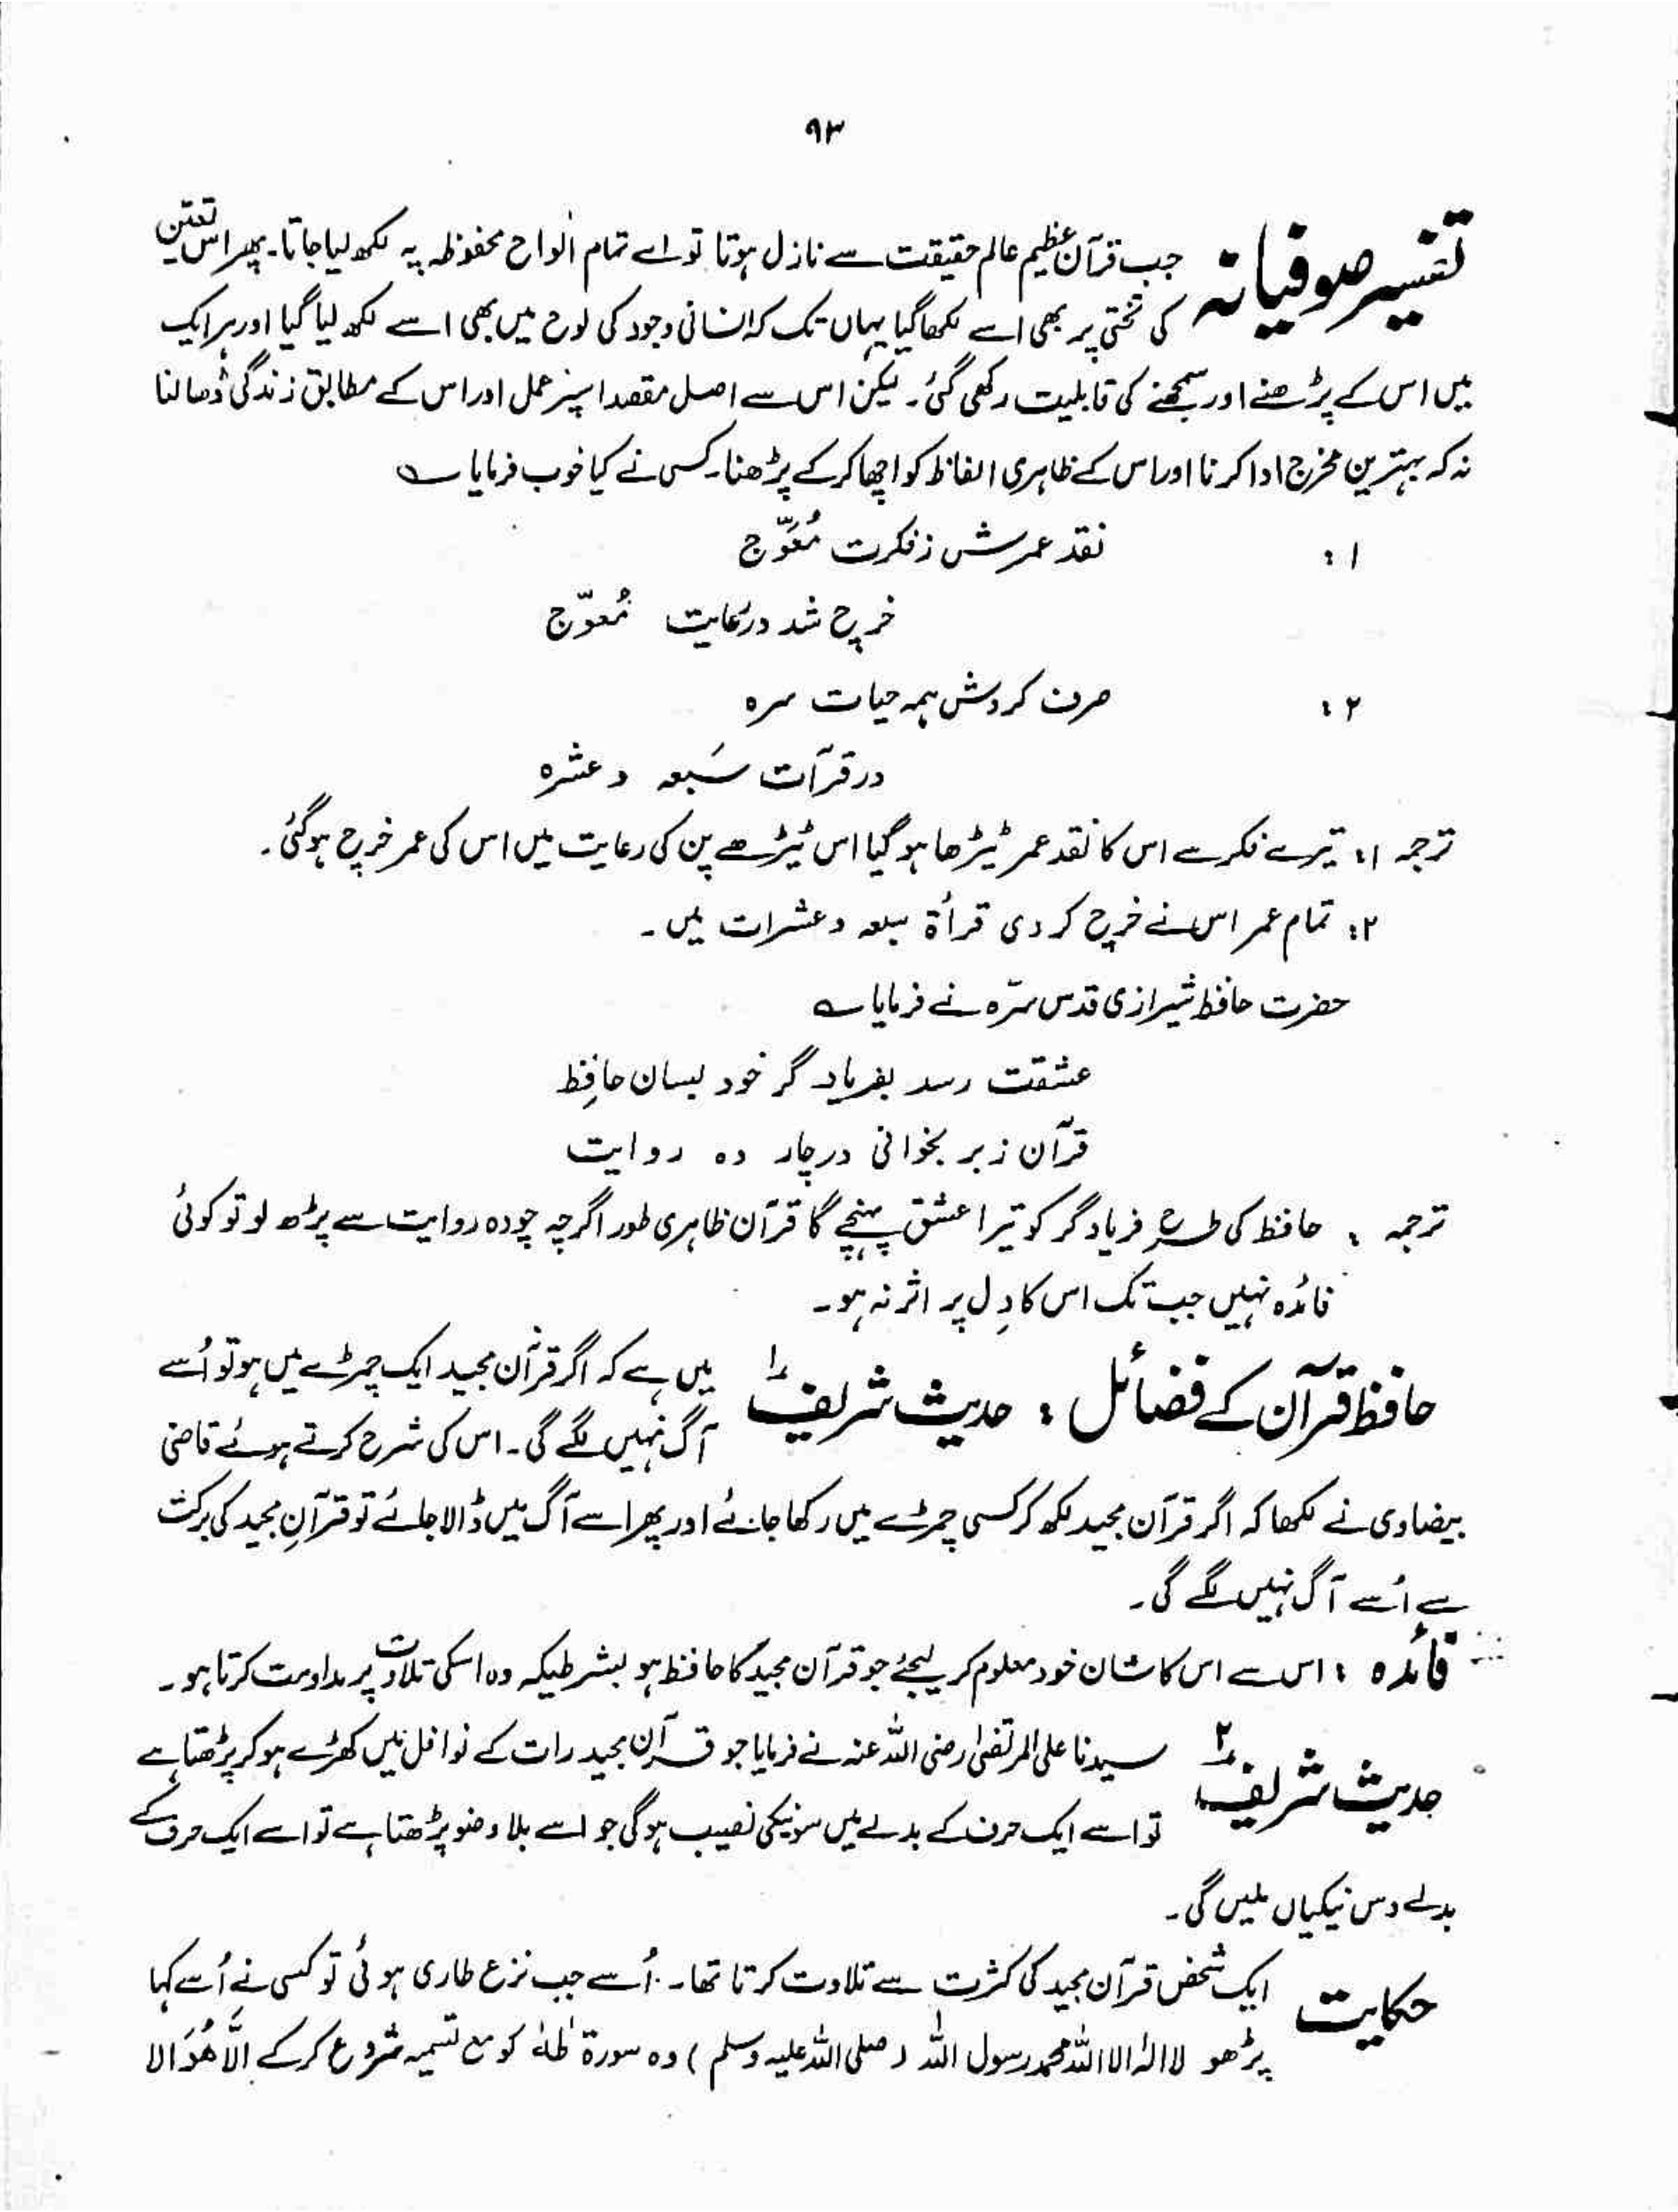 ۹۳
تفسیر صوفیانہ جب قرآن عظیم عالم حقیقت سے نازل ہوتا تو اے تمام الواح محفوظہ پہ لکھ لیا جاتا۔ پھر اس تعین
کی تختی پر بھی اسے لکھا گیا یہاں تک کہ انسانی وجود کی لوح میں بھی اسے لکھ لیا گیا اور ہر ایک
میں اس کے پڑھنے اور سمجھنے کی قابلیت رکھی گئی۔ لیکن اس سے اصل مقصد اپنے عمل اور اس کے مطابق زندگی ڈھالنا
نہ کہ بہترین مخرج ادا کرنا اور اس کے ظاہری الفاظ کو اچھا کر کے پڑھنا۔ کسی نے کیا خوب فرمایا ؎
۱: نقد عمرش ز فکرت مُعَوَّج
خرچ شد در رعایت مُعوّج
۲: صرف کردش ہمہ حیات سرہ
در قرآت سَبعہ و عشرہ
ترجمہ ۱: تیرے فکر سے اس کا نقد عمر ٹیڑھا ہو گیا اس ٹیڑھے پن کی رعایت میں اس کی عمر خرچ ہو گئی۔
۲: تمام عمر اس نے خرچ کر دی قرأۃ سبعہ و عشرات میں۔
حضرت حافظ شیرازی قدس سرّہ نے فرمایا ؎
عشقت رسد بفریاد گر خود بسان حافِظ
قرآن زبر بخوانی در چار دہ روایت
ترجمہ : حافظ کی طرح فریاد گر کو تیرا عشق پہنچے گا قرآن ظاہری طور اگرچہ چودہ روایت سے پڑھ لو تو کوئی
فائدہ نہیں جب تک اس کا دِل پر اثر نہ ہو۔
حافظ قرآن کے فضائل : حدیث شریف ۱ میں ہے کہ اگر قرآن مجید ایک چمڑے میں ہو تو اُسے
آگ نہیں لگے گی۔ اس کی شرح کرتے ہوئے قاضی
بیضاوی نے لکھا کہ اگر قرآن مجید لکھ کر کسی چمڑے میں رکھا جائے اور پھر اسے آگ میں ڈالا جائے تو قرآنِ مجید کی برکت
سے اُسے آگ نہیں لگے گی۔
فائدہ : اس سے اس کا شان خود معلوم کر لیجئے جو قرآن مجید کا حافظ ہو بشرطیکہ وہ اسکی تلاوت پر مداومت کرتا ہو۔
حدیث شریف ۲ سیدنا علی المرتضیٰ رضی اللہ عنہ نے فرمایا جو قرآن مجید رات کے نوافل میں کھڑے ہو کر پڑھتا ہے
تو اسے ایک حرف کے بدلے میں سو نیکی نصیب ہو گی جو اسے بلا وضو پڑھتا ہے تو اسے ایک حرف کے
بدلے دس نیکیاں ملیں گی۔
حکایت ایک شخص قرآن مجید کی کثرت سے تلاوت کرتا تھا۔ اُسے جب نزع طاری ہوئی تو کسی نے اُسے کہا
پڑھو لا الہٰ الا اللہ محمد رسول اللہ (صلی اللہ علیہ وسلم) وہ سورۃ طٰہٰ کو مع تسمیہ شروع کر کے اِلَّا ھُوَ الا